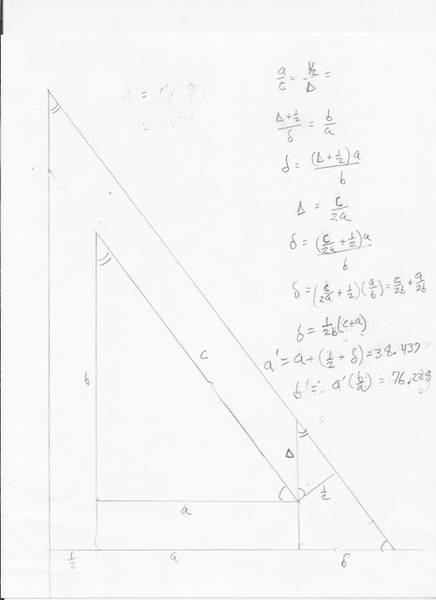 a/c = 1/2/Δ =
Δ+1/2/δ = b/a
δ = (Δ+1/2)a/b
Δ = c/2a
δ = (c/2a + 1/2)a/b
δ = (c/2a + 1/2)(a/b) = c/2b + a/2b
δ = 1/2b(c+a)
a' = a + (1/2 + δ) = 38.437
b' = a'(b/a) =
c
b
Δ
1/2
a
1/2
a
δ